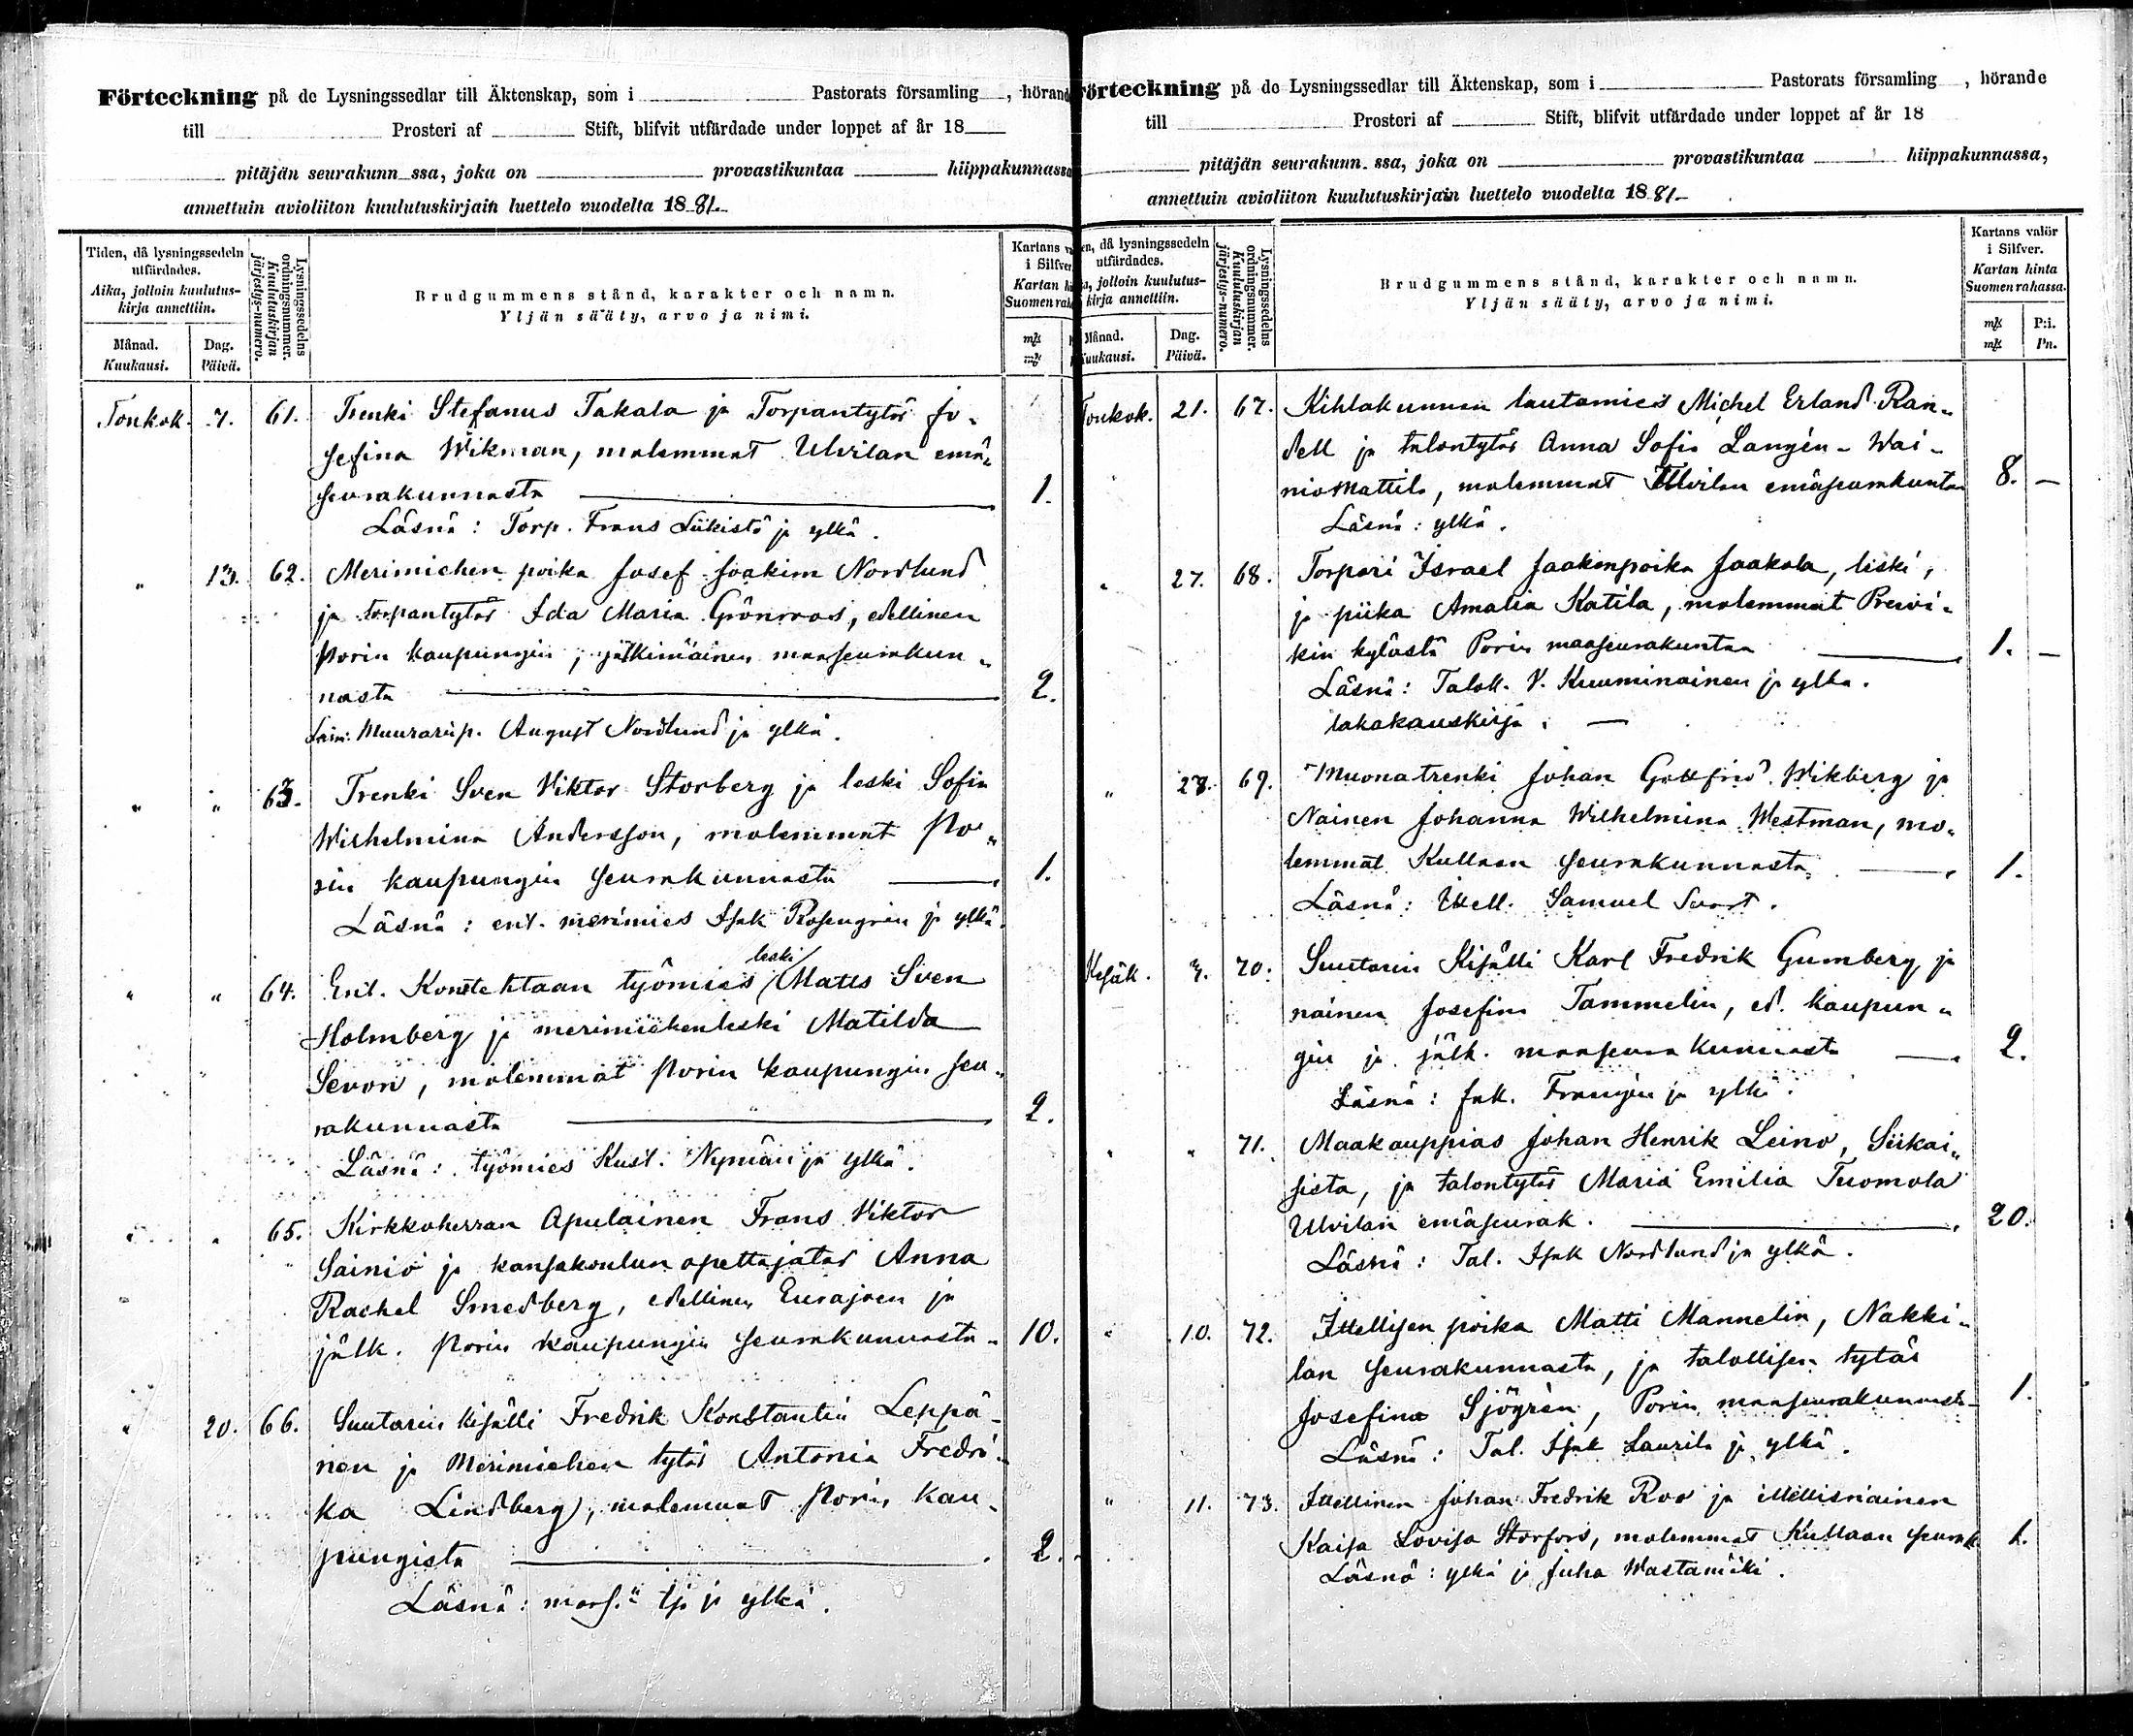 Förteckning på de Lysningssedlar till Äktenskap, som i Pastorats församling , hörande
till Prosteri af Stift, blifvit utfärdade under loppet af år 18
pitäjän seurakunn ssa, joka on provastikuntaa hiippakunnassa
annettuin avioliiton kuulutuskirjain luettelo vuodelta 1881.
Tiden, då lysningssedeln utfärdades.
Aika, jolloin kuulutus-kirja annettiin.
Månad. Kuukausi.
Dag. Päivä.
Lysningssedelns ordningsnummer.
Kuulutuskirjan järjestys-numero.
Brudgummens stånd, karakter och namn.
Yljän sääty, arvo ja nimi.
Kartans
i Silfver
Kartan
Suomen
mk
mk
Toukok. 7. 61. Trenki Stefanus Takala ja Torpantytär Jo-
sefina Wikman, molemmat Ulvilan emä-
seurakunnasta 1.
Läsnä: Torp. Frans Liikistö ja ylkä.
" 13. 62. Merimiehen poika Josef Joakim Nordlund
ja torpantytär Ida Maria Grönroos, edellinen
Porin kaupungin, jälkimäinen maaseurakun-
nasta 2.
Läsn: Muurarip. August Nordlund ja ylkä.
" " 63. Trenki Sven Viktor Storberg ja leski Sofia
Wilhelmina Andersson, molemmat Po-
rin kaupungin seurakunnasta 1.
Läsnä: ent. merimies Isak Rosengren ja ylkä.
leski
" " 64. Ent. Konstehtaan työmies Matts Sven
Holmberg ja merimiehenleski Matilda
Sevon, molemmat Porin kaupungin seu-
rakunnasta 2.
Läsnä: työmies Kust. Nyman ja ylkä.
" " 65. Kirkkoherran Apulainen Frans Viktor
Sainio ja kansakoulun opettajatar Anna
Rachel Smedberg, edellinen Eurajoen ja
jälk. Porin kaupungin seurakunnasta. 10.
" 20. 66. Suutarin kisälli Fredrik Konstantin Leppä-
nen ja Merimiehen tytär Antonia Fredri-
ka Lindberg, molemmat Porin kau-
pungista 2.
Läsnä: ja ylkä.
Förteckning på de Lysningssedlar till Äktenskap, som i Pastorats församling , hörande
till Prosteri af Stift, blifvit utfärdade under loppet af år 18
pitäjän seurakunn. ssa, joka on provastikuntaa hiippakunnassa,
annettuin avioliiton kuulutuskirjain luettelo vuodelta 1881.
då lysningssedeln utfärdades.
jolloin kuulutus-kirja annettiin.
Månad. Kuukausi.
Dag. Päivä.
Lysningssedelns ordningsnummer.
Kuulutuskirjan järjestys-numero.
Brudgummens stånd, karakter och namn.
Yljän sääty, arvo ja nimi.
Kartans valör
i Silfver.
Kartan hinta
Suomen rahassa.
mk P:i.
mk Pn.
Toukok. 21. 67. Kihlakunnan lautamies Michel Erland Ran-
dell ja talontytär Anna Sofia Langén-Wai-
nioMattila, molemmat Ulvilan emäseurakuntaa 8. —
Läsnä: ylkä.
" 27. 68. Torpari Israel Jaakonpoika Jaakola, leski,
ja piika Amalia Katila, molemmat Preivi-
kin kylästä Porin maaseurakuntaa 1. —
Läsnä: Talok. V. Kuuminainen ja ylkä.
takakauskirja. —
" 28. 69. Muonatrenki Johan Gottfrid Wikberg ja
Nainen Johanna Wilhelmina Westman, mo-
lemmat Kullaan seurakunnasta 1.
Läsnä: Itsell. Samuel Suort.
Kesäk. 3. 70. Suutarin Kisälli Karl Fredrik Gumberg ja
nainen Josefina Tammelin, ed. kaupun-
gin ja jälk. maaseurakunnasta 2.
Läsnä: Jak. Franzén ja ylkä.
" " 71. Maakauppias Johan Henrik Leino, Siikai-
sista, ja talontytär Maria Emilia Tuomola
Ulvilan emäseurak. 20.
Läsnä: Tal. Isak Nordlund ja ylkä.
" 10. 72. Itsellisen poika Matti Mannelin, Nakki-
lan seurakunnasta, ja talollisen tytär
Josefina Sjögrén, Porin maaseurakunnasta 1.
Läsnä: Tal. Isak Laurila ja ylkä.
" 11. 73. Itsellinen Johan Fredrik Roo ja itsellisnainen
Kaisa Lovisa Storfors, molemmat Kullaan seurak. 1.
Läsnä: ylkä ja Juha Wastamäki.